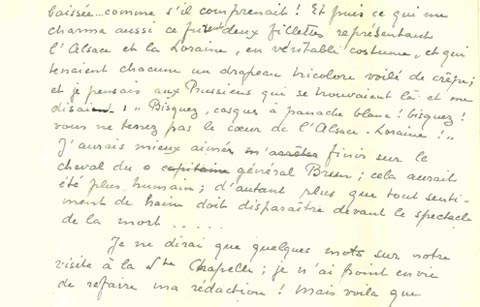 baissée...comme s'il comprenait ! Et puis ce qui me
charma aussi ce furent deux fillettes représentant
l'Alsace et la Loraine, en véritable costume, et qui
tenaient chacune un drapeau tricolore voilé de crêpe;
et je pensais aux Prussiens qui se trouvaient là et me
disaient : "Bisquez, casques à panache blanc ! bisquez !
vous ne tenez pas le cœur de l'Alsace-Loraine !"
J'aurais mieux aimée m'arrêter finir sur le
cheval du capitaine général Brun; cela aurait
été plus humain; d'autant plus que tout senti-
ment de haine doit disparaître devant le spectacle
de la mort .....
Je ne dirai que quelques mots sur notre
visite à la Ste Chapelle; je n'ai point envie
de refaire ma rédaction ! Mais voilà que